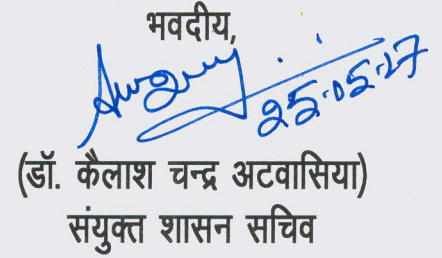 भवदीय,
25.05.17
(डॉ. कैलाश चन्द्र अटवासिया)
संयुक्त शासन सचिव